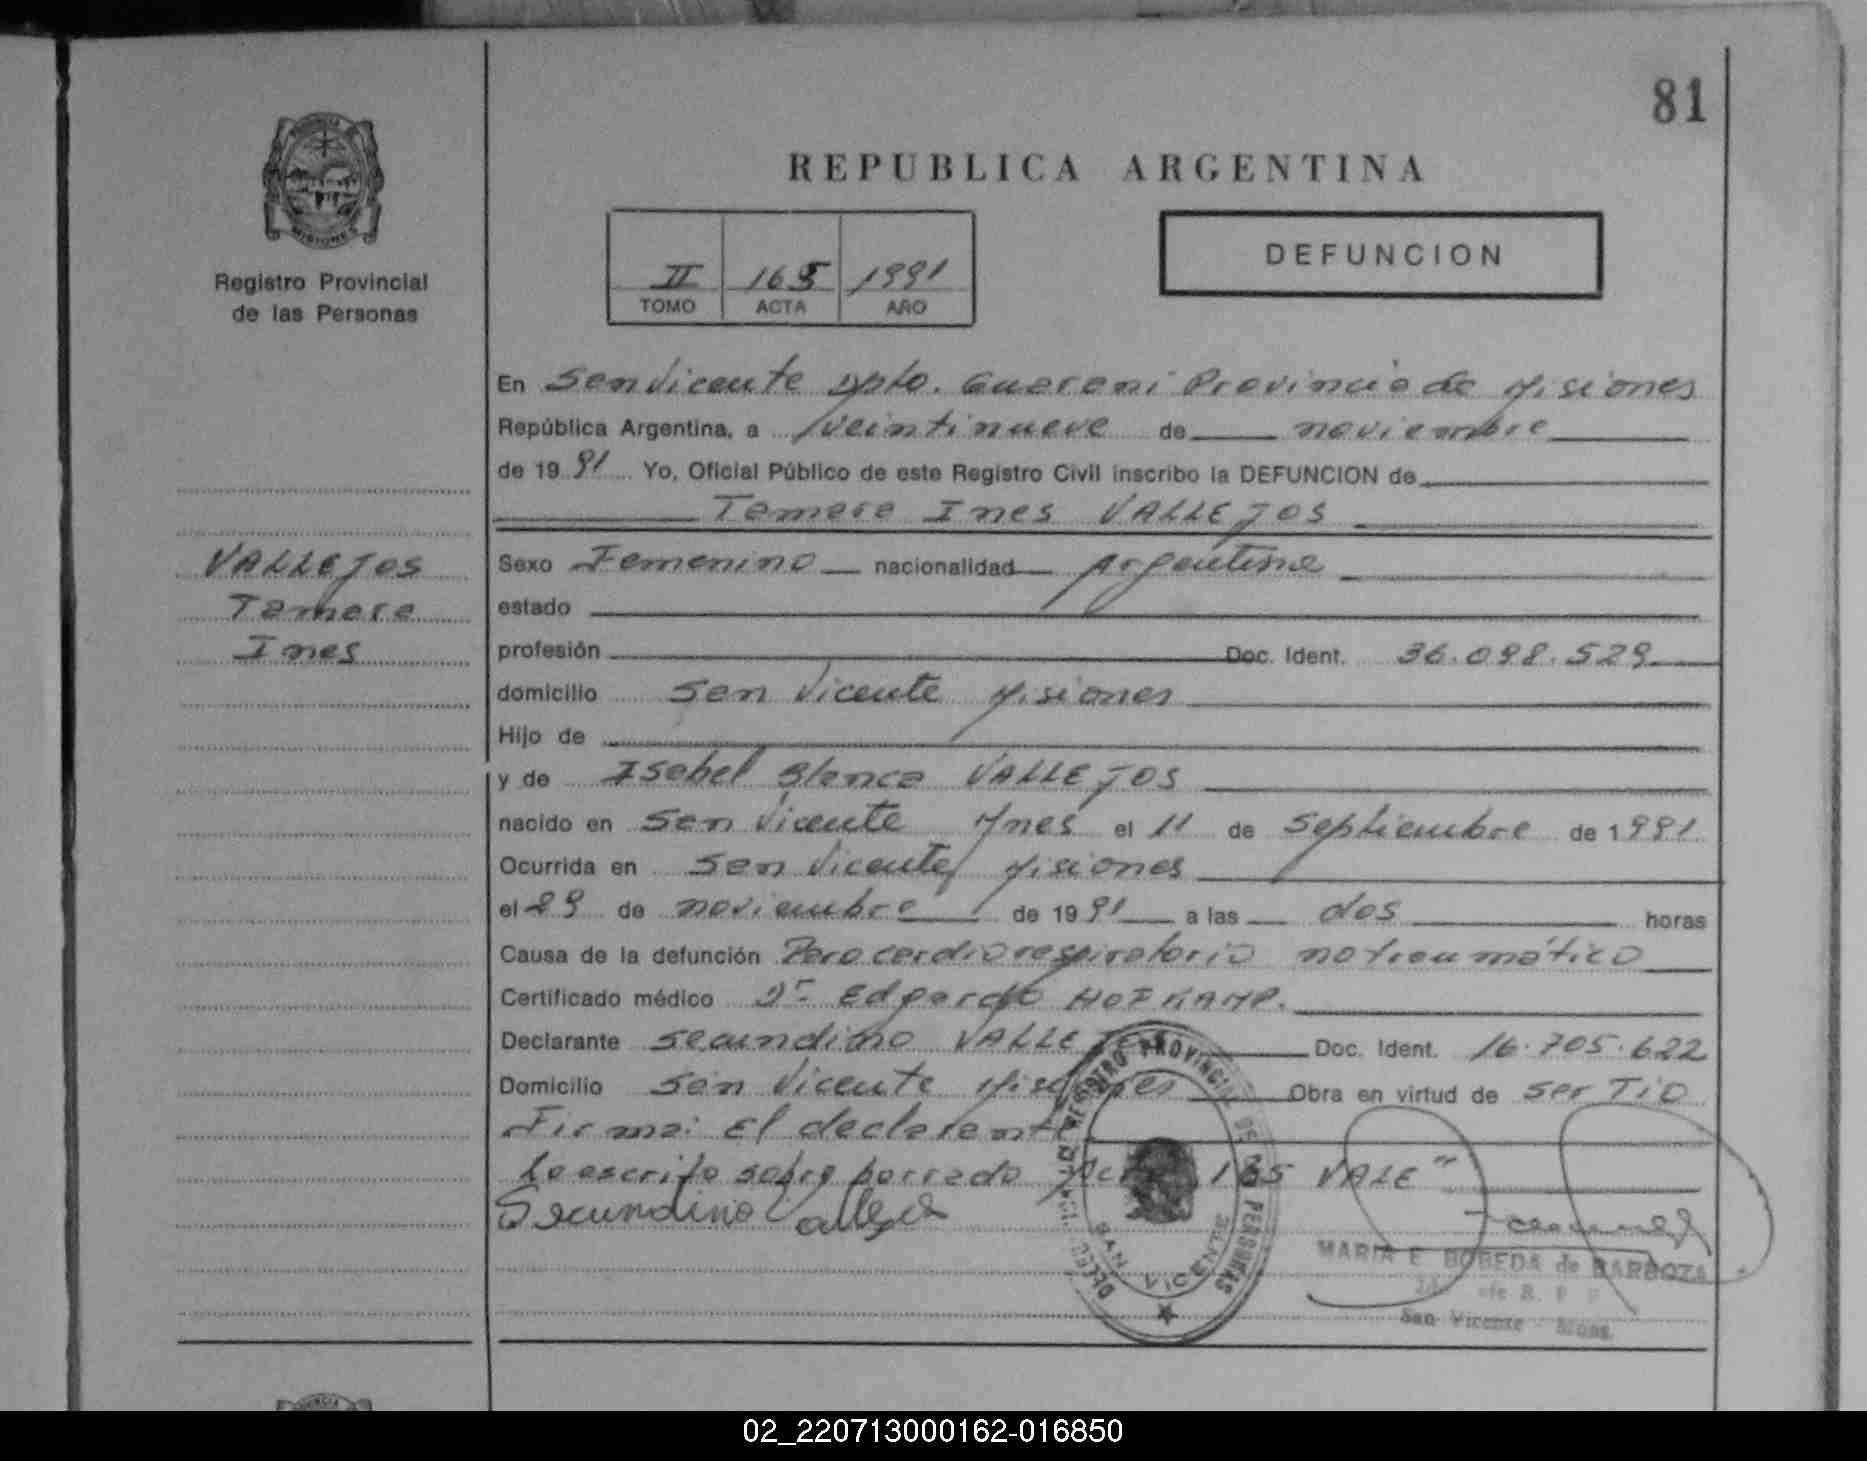 81
REPUBLICA ARGENTINA
PROVINCIA DE
MISIONES
Registro Provincial
de las Personas
II 165 1991
TOMO ACTA AÑO
DEFUNCION
VALLEJOS
Tamara
Ines
En San Vicente Dpto. Guarani Provincia de Misiones
República Argentina, a veintinueve de noviembre
de 1991 Yo, Oficial Público de este Registro Civil inscribo la DEFUNCION de
Tamara Ines VALLEJOS
Sexo Femenino nacionalidad Argentina
estado
profesión Doc. Ident. 36.098.529
domicilio San Vicente Misiones
Hijo de
y de Isabel Blanca VALLEJOS
nacido en San Vicente Mnes el 11 de Septiembre de 1991
Ocurrida en San Vicente, Misiones
el 29 de noviembre de 1991 a las dos horas
Causa de la defunción Paro cardiorespiratorio no traumático
Certificado médico Dr. Edgardo HOFKAMP.
Declarante Secundino VALLEJOS Doc. Ident. 16.705.622
Domicilio San Vicente Misiones Obra en virtud de ser Tio
Firma: El declarante
Lo escrito sobre borrado "Acta 165 VALE"
Secundino Vallejos
REGISTRO PROVINCIAL DE LAS PERSONAS
SAN VICENTE
MARIA E. BOBEDA de BARBOZA
San Vicente - Mnes.
02_220713000162-016850